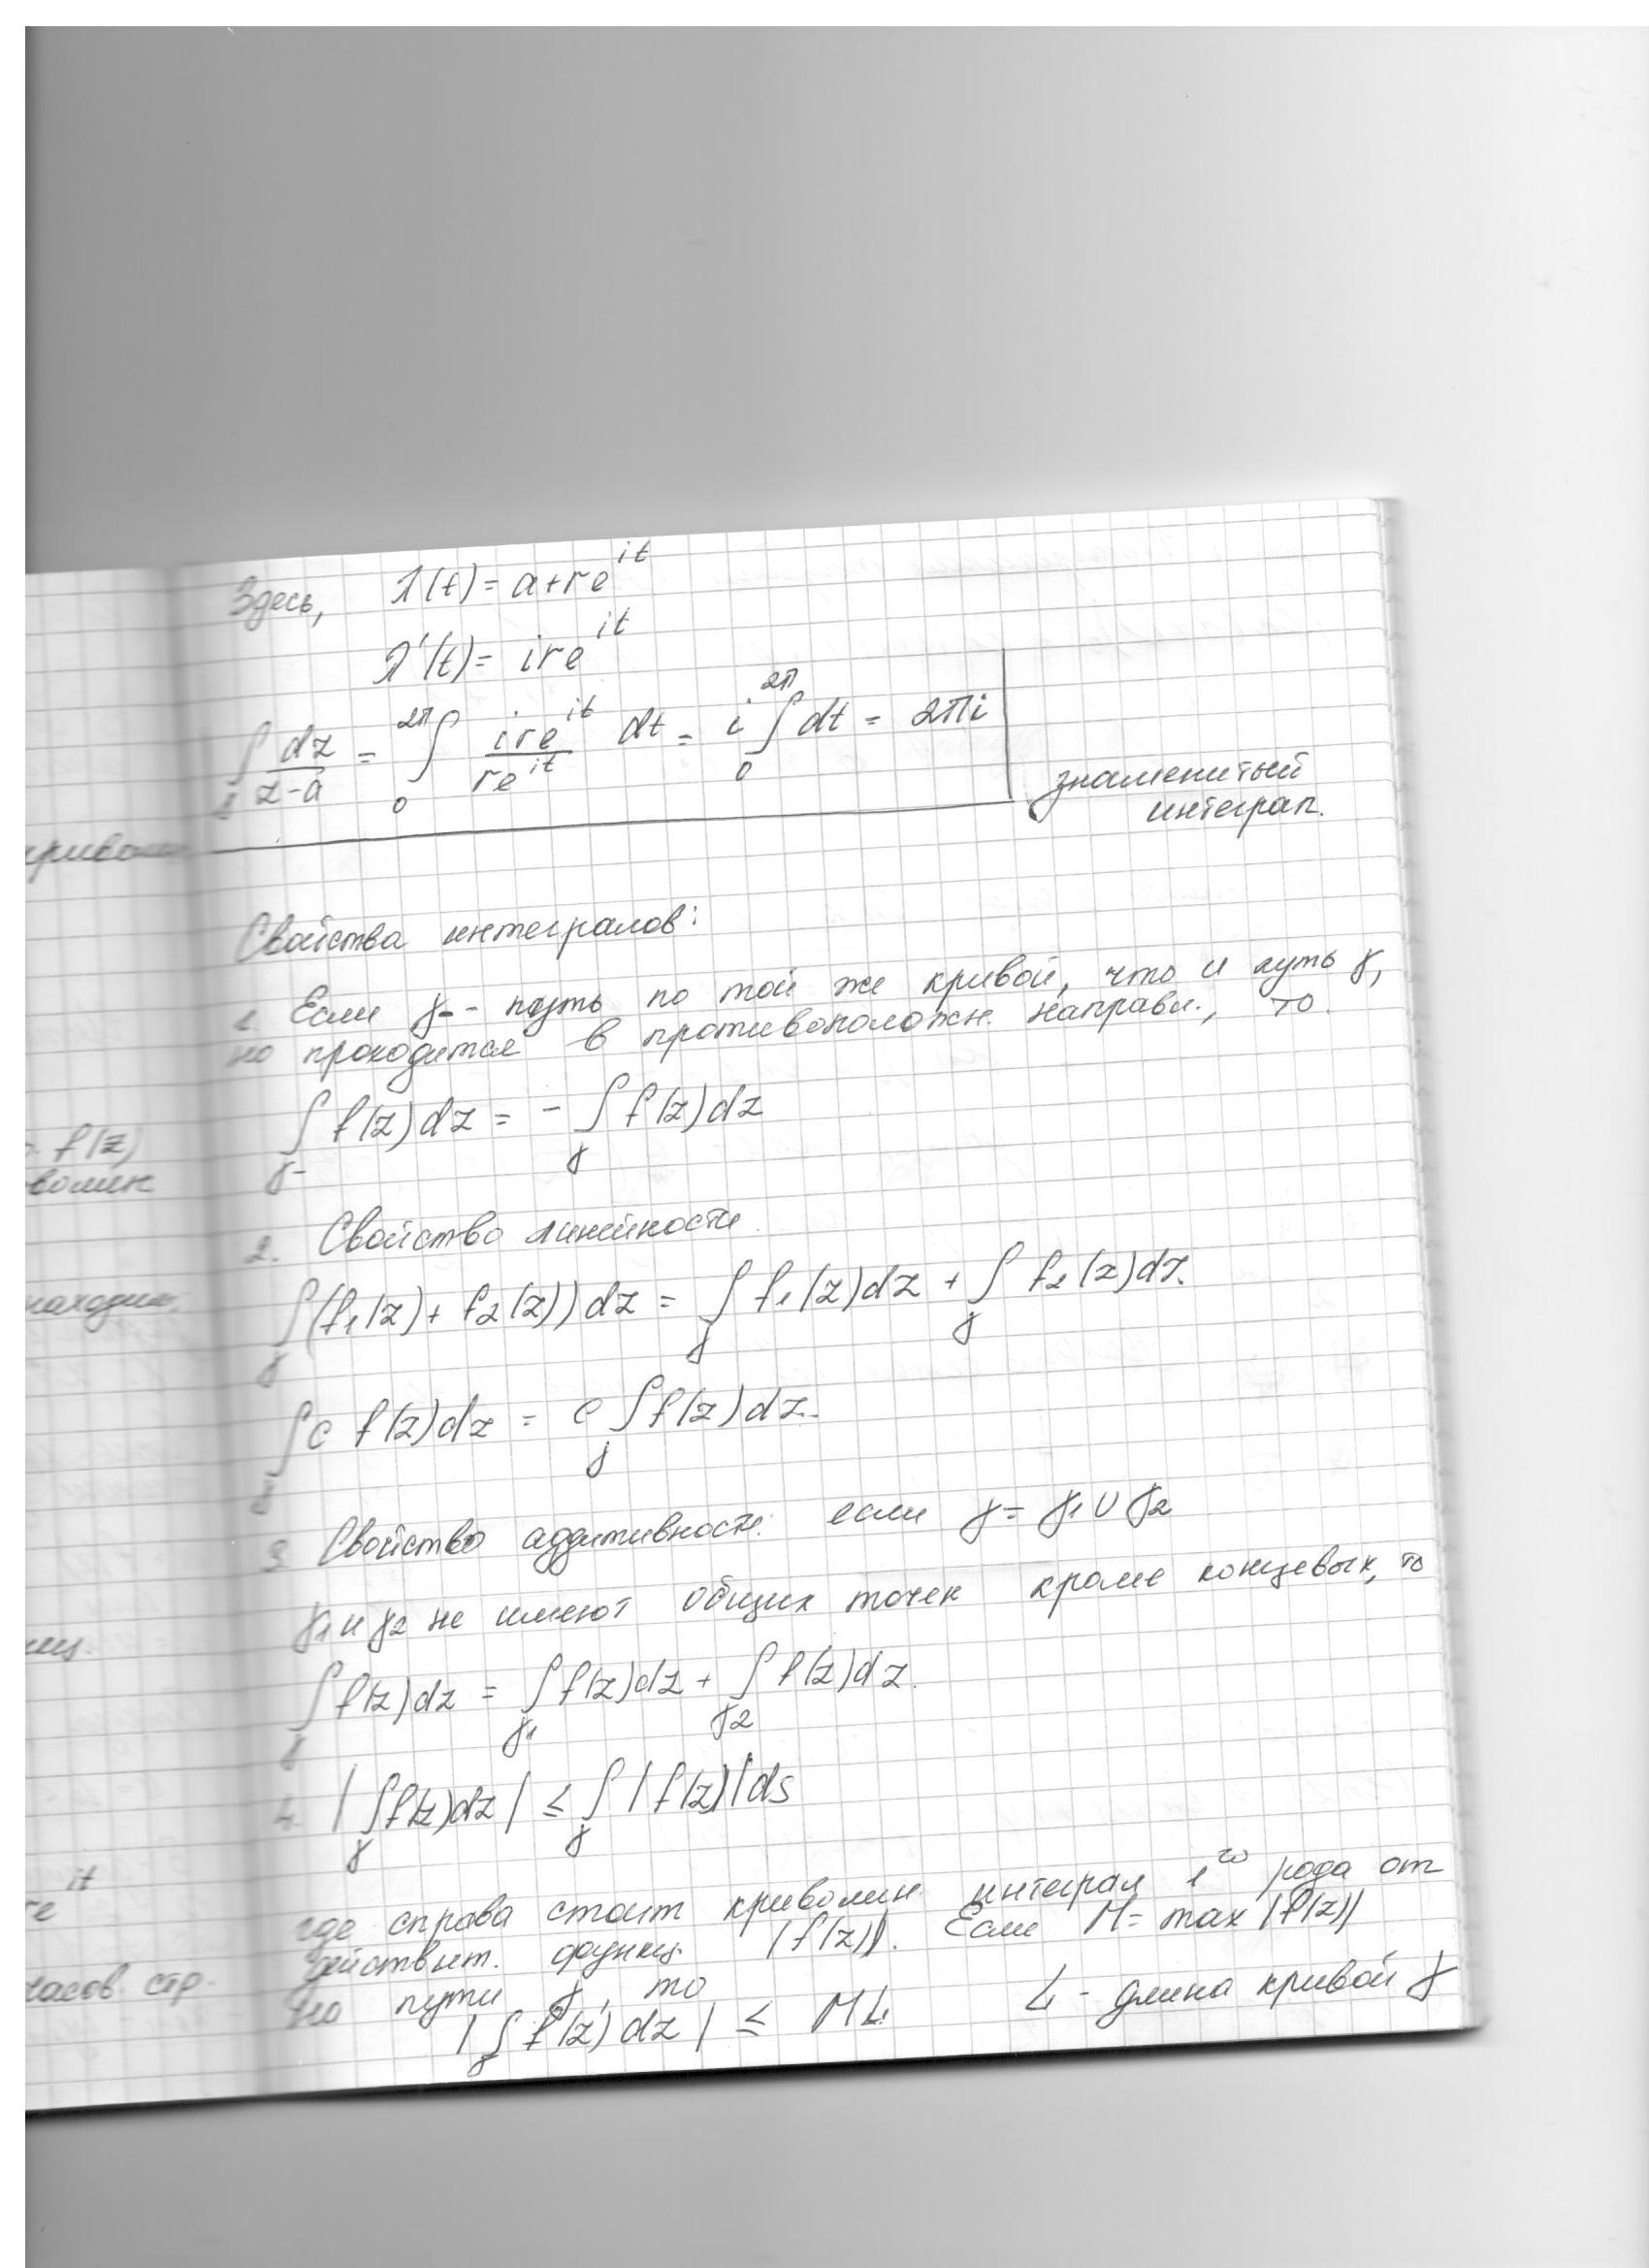 Здесь, λ(t) = a+re^{it}
λ'(t) = ire^{it}
∫_γ dz/(z-a) = ∫_0^{2π} ire^{it}/re^{it} dt = i ∫_0^{2π} dt = 2πi
знаменитый
интеграл.
Свойства интегралов:
1. Если γ- - путь по той же кривой, что и путь γ,
но проходится в противоположн. направл., то.
∫_{γ-} f(z)dz = - ∫_γ f(z)dz
2. Свойство линейности.
∫_γ (f₁(z) + f₂(z))dz = ∫_γ f₁(z)dz + ∫_γ f₂(z)dz.
∫_γ c f(z)dz = c ∫_γ f(z)dz.
3. Свойство аддитивности: если γ = γ₁ ∪ γ₂
γ₁ и γ₂ не имеют общих точек кроме концевых, то
∫_γ f(z)dz = ∫_{γ₁} f(z)dz + ∫_{γ₂} f(z)dz.
4. |∫_γ f(z)dz| ≤ ∫_γ |f(z)|ds
где справа стоит криволин интеграл 1^{го} рода от
действит. функц. |f(z)|. Если M = max |f(z)|
по пути γ, то
|∫_γ f(z)dz| ≤ ML L - длина кривой γ
f(z)
находим.
e^{it}
часов. стр.